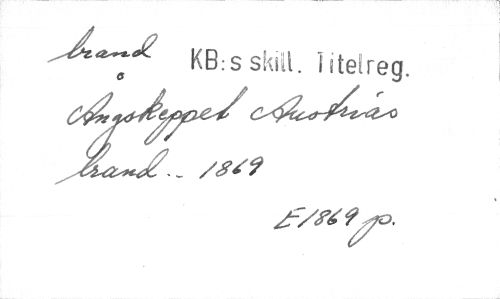 brand KB:s skill. Titelreg.
Ångskeppet Austrias
brand.. 1869
E1869 p.